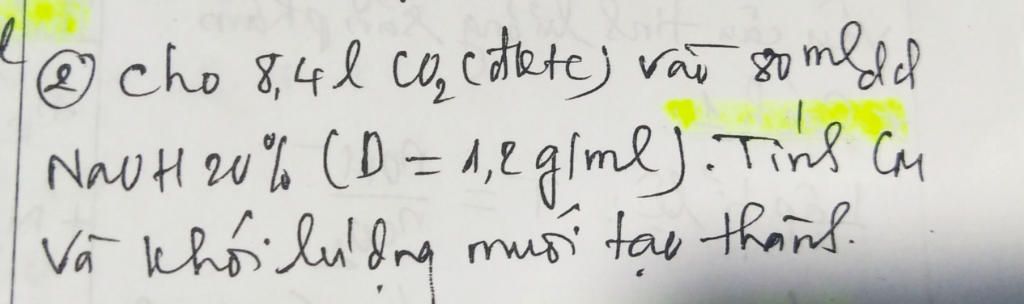 ② Cho 8,4l CO₂ (đktc) vào 80 ml dd
NaOH 20% (D = 1,2 g/ml). Tính CM
Và khối lượng muối tạo thành.